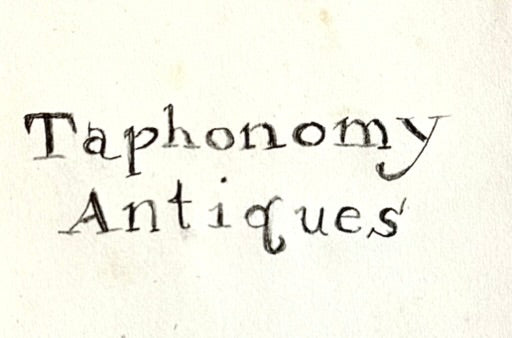 Taphonomy
Antiques